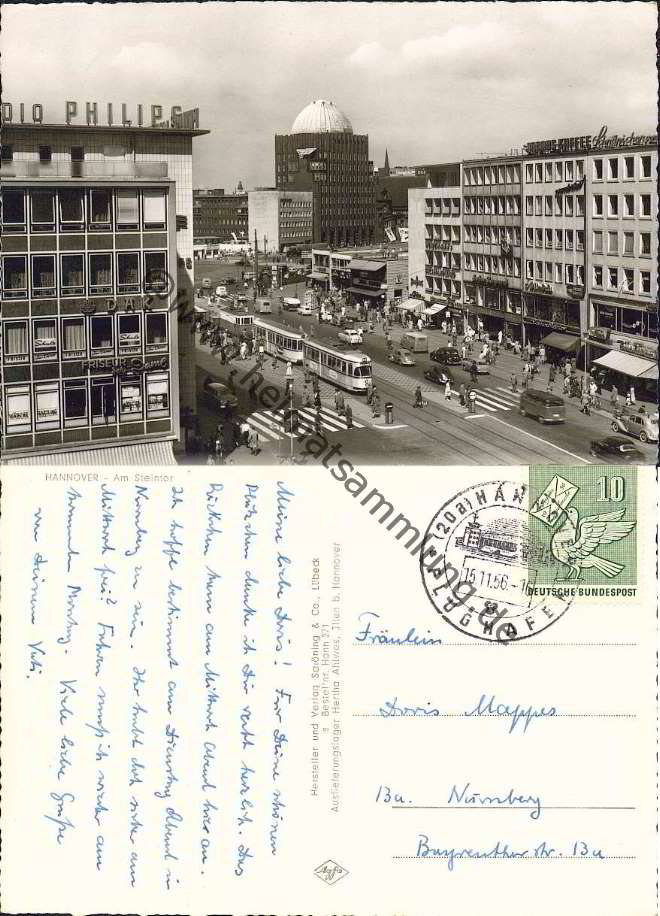 DIO PHILIPS
FRISEUR
HANNOVER - Am Steintor
Meine liebe Doris! Für Deine schönen
Plätzchen danke ich Dir recht herzlich. Das
Päckchen kam am Mittwoch Abend hier an.
Ich hoffe bestimmt am Dienstag Abend in
Nürnberg zu sein. Ihr habt doch sicher am
Mittwoch frei? Fahren muß ich wieder am
kommenden Montag. Viele liebe Grüße
von Deinem Vati.
Hersteller und Verlag Schöning & Co., Lübeck
Bestell'nr. Hann 271
Auslieferungslager Hertha Ahlwes, Ilten b. Hannover
Agfa
(20a) HANNOVER
15.11.56.-1
FLUGHAFEN
10
DEUTSCHE BUNDESPOST
Fräulein
Doris Mappes
13a. Nürnberg
Bayreuther str. 13a
© www.heimatsammlung.de